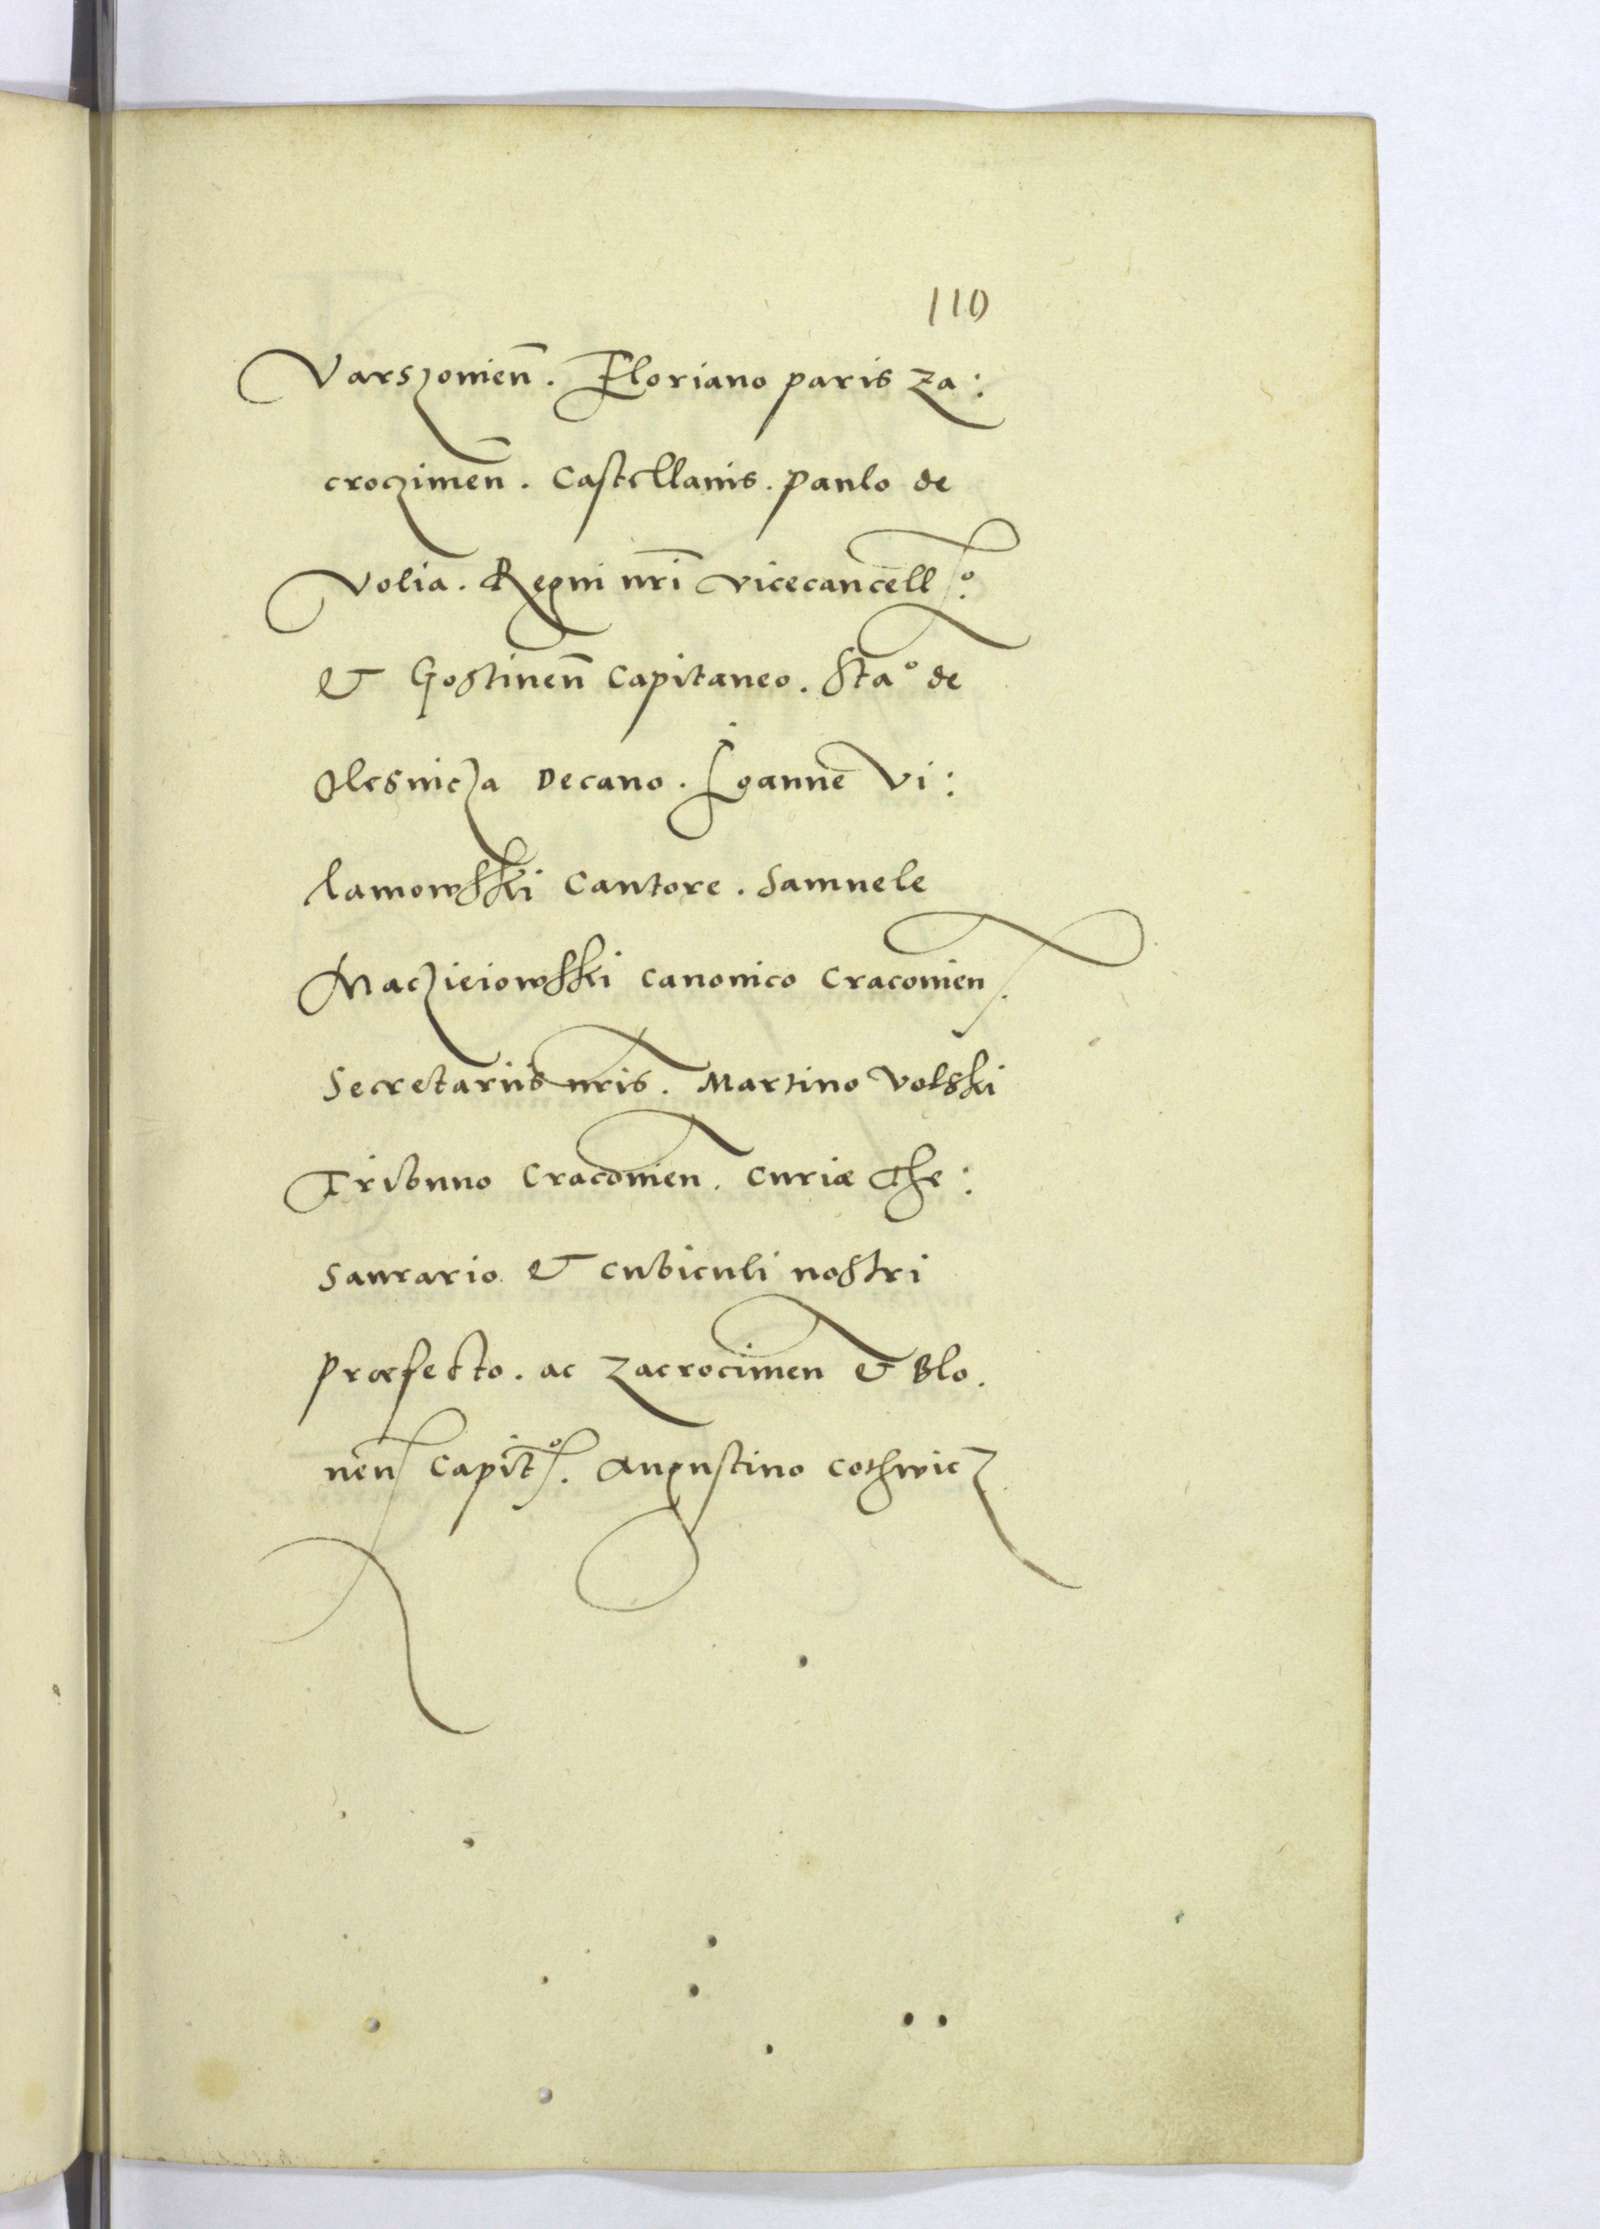 110
Varszouien̄. Floriano Paris Za:
croczimen̄. Castellanis. Paulo de
Volia. Regni nr̄i vicecancell°.
& Gostinen̄ Capitaneo. Sta° de
Olesnicza Decano. Ioanne Vi:
lamowski Cantore. Samuele
Macziejowski Canonico Cracouien.
Secretariis nris. Martino Volski
Tribuno Cracouien. Curiæ The:
saurario & cubiculi nostri
Præfecto. ac Zacrocimen & Blo.
nen Capit°. Augustino Cothwicz